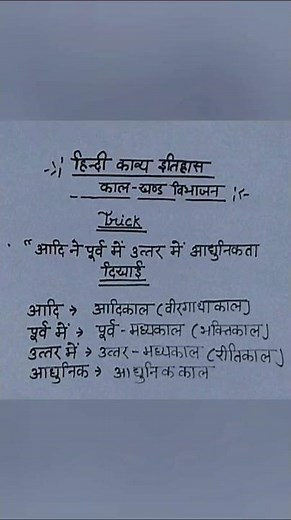 हिन्दी काव्य इतिहास
काल-खण्ड विभाजन
Trick
"आदि ने पूर्व में उत्तर में आधुनिकता
दिखाई
आदि → आदिकाल (वीरगाथा काल)
पूर्व में → पूर्व-मध्यकाल (भक्तिकाल)
उत्तर में → उत्तर-मध्यकाल (रीतिकाल)
आधुनिक → आधुनिक काल